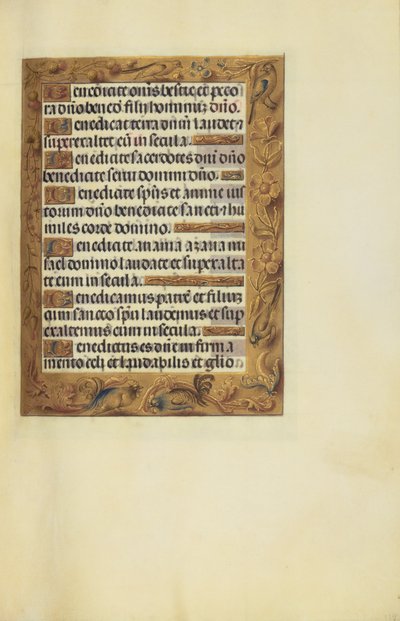 Benedicite om̄s bestie et peco
ra dn̄o bened̄. filij hominuʒ dn̄o.
Benedicat terra dn̄m laudet ⁊
superexaltet eū in secula.
Benedicite sacerdotes dn̄i dn̄o
benedicite serui domini dn̄o.
Benedicite spūs et anime ius
torum dn̄o benedicite sancti ⁊ hu
miles corde domino.
Benedicite anania azaria mi
sael domino laudate et superalta
te eum in secula.
Benedicamus patrē et filiuʒ
cum sancto spū laudemus et sup
exaltemus eum in secula.
Benedictus es dn̄e in firma
mento celi et laudabilis et glio